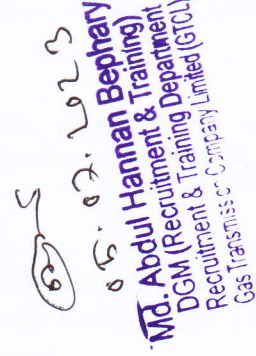 05.02.2023
Md. Abdul Hannan Bephary
DGM (Recruitment & Training)
Recruitment & Training Department
Gas Transmission Company Limited (GTCL)